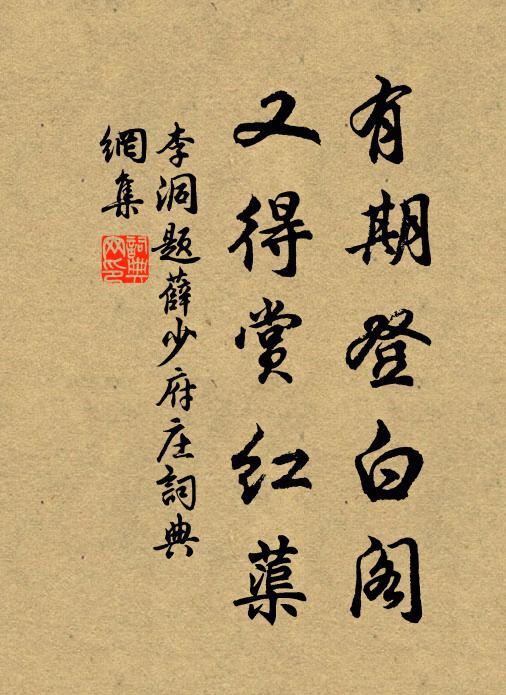 有期登白阁
又得赏红蕖
李洞题薛少府庄词典
網集
詞典網印